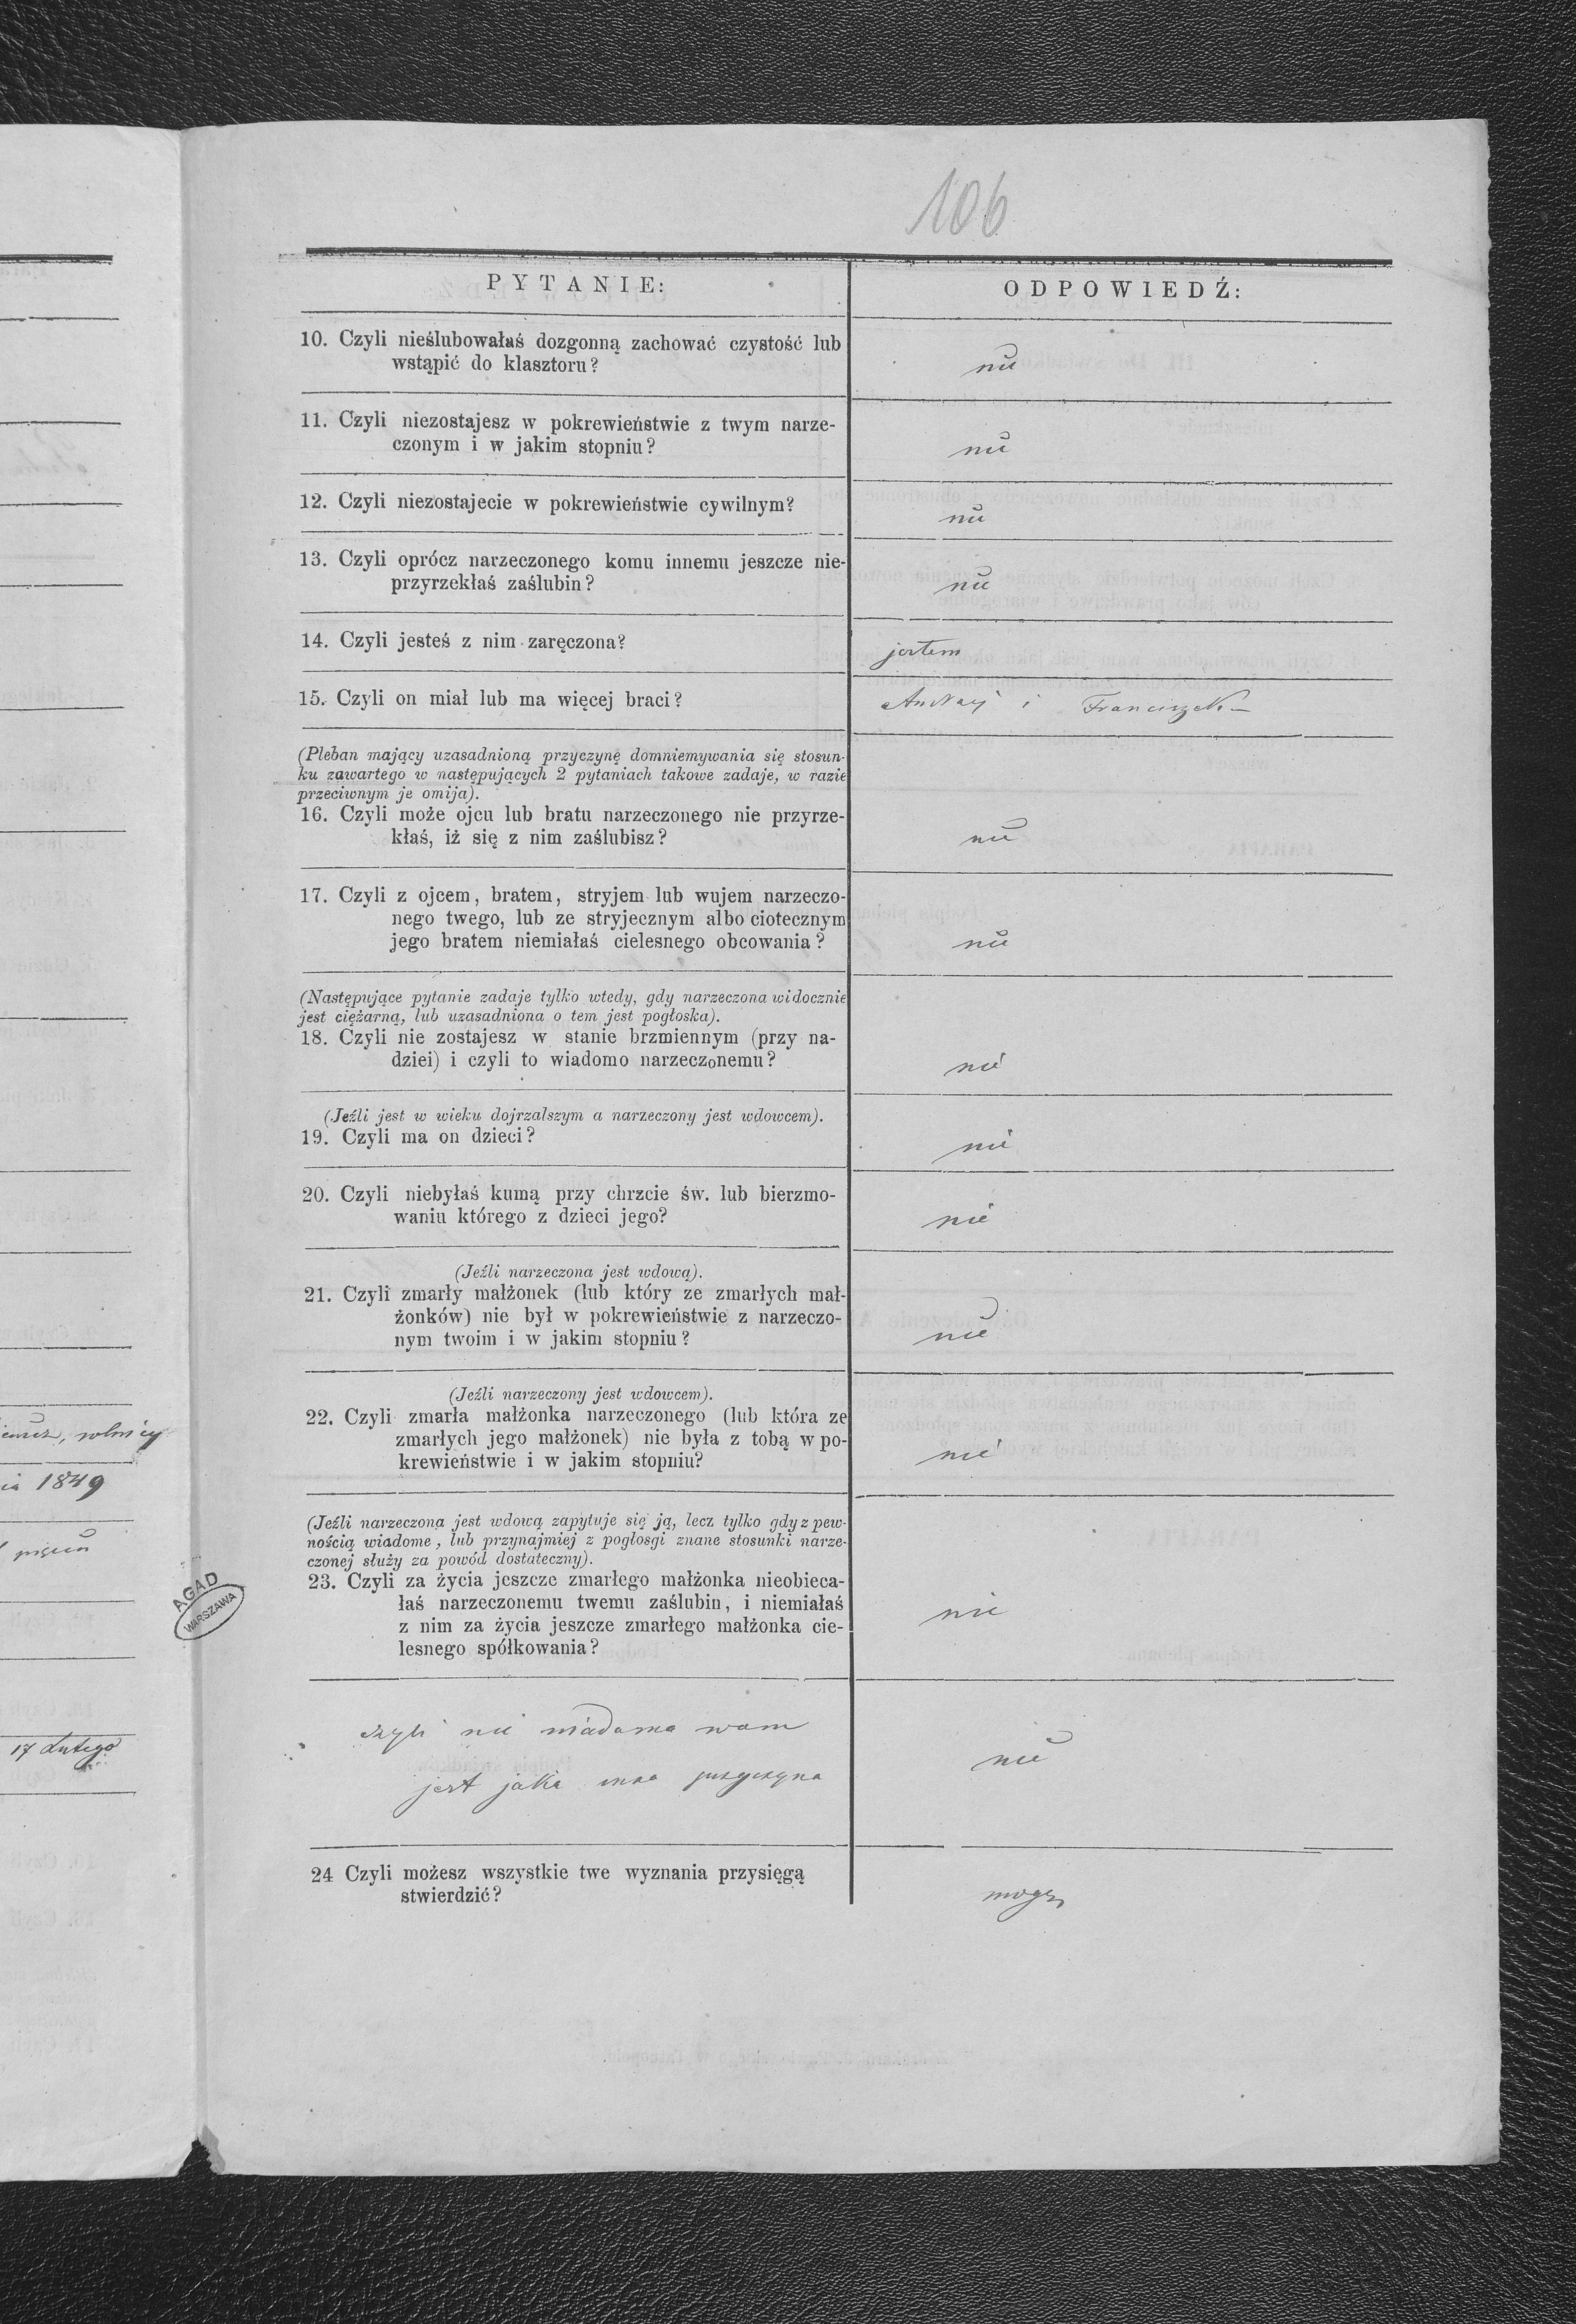 106
PYTANIE:
ODPOWIEDŹ:
10. Czyli nieślubowałaś dozgonną zachować czystość lub
wstąpić do klasztoru?
nie
11. Czyli niezostajesz w pokrewieństwie z twym narze-
czonym i w jakim stopniu?
nie
12. Czyli niezostajecie w pokrewieństwie cywilnym?
nie
13. Czyli oprócz narzeczonego komu innemu jeszcze nie-
przyrzekłaś zaślubin?
nie
14. Czyli jesteś z nim zaręczona?
jestem
15. Czyli on miał lub ma więcej braci?
Andrzej i Franciszek
(Pleban mający uzasadnioną przyczynę domniemywania się stosun-
ku zawartego w następujących 2 pytaniach takowe zadaje, w razie
przeciwnym je omija).
16. Czyli może ojcu lub bratu narzeczonego nie przyrze-
kłaś, iż się z nim zaślubisz?
nie
17. Czyli z ojcem, bratem, stryjem lub wujem narzeczo-
nego twego, lub ze stryjecznym albo ciotecznym
jego bratem niemiałaś cielesnego obcowania?
nie
(Następujące pytanie zadaje tylko wtedy, gdy narzeczona widocznie
jest ciężarną, lub uzasadniona o tem jest pogłoska).
18. Czyli nie zostajesz w stanie brzmiennym (przy na-
dziei) i czyli to wiadomo narzeczonemu?
nie
(Jeźli jest w wieku dojrzalszym a narzeczony jest wdowcem).
19. Czyli ma on dzieci?
nie
20. Czyli niebyłaś kumą przy chrzcie św. lub bierzmo-
waniu którego z dzieci jego?
nie
(Jeźli narzeczona jest wdową).
21. Czyli zmarły małżonek (lub który ze zmarłych mał-
żonków) nie był w pokrewieństwie z narzeczo-
nym twoim i w jakim stopniu?
nie
(Jeźli narzeczony jest wdowcem).
22. Czyli zmarła małżonka narzeczonego (lub która ze
zmarłych jego małżonek) nie była z tobą w po-
krewieństwie i w jakim stopniu?
nie
(Jeźli narzeczona jest wdową zapytuje się ją, lecz tylko gdy z pew-
nością wiadome, lub przynajmiej z pogłosgi znane stosunki narze-
czonej służy za powód dostateczny).
23. Czyli za życia jeszcze zmarłego małżonka nieobieca-
łaś narzeczonemu twemu zaślubin, i niemiałaś
z nim za życia jeszcze zmarłego małżonka cie-
lesnego spółkowania?
nie
czyli nie wiadoma wam
jest jaka inna przyczyna
nie
24 Czyli możesz wszystkie twe wyznania przysięgą
stwierdzić?
mogę
1849
17 Lutego
AGAD
WARSZAWA